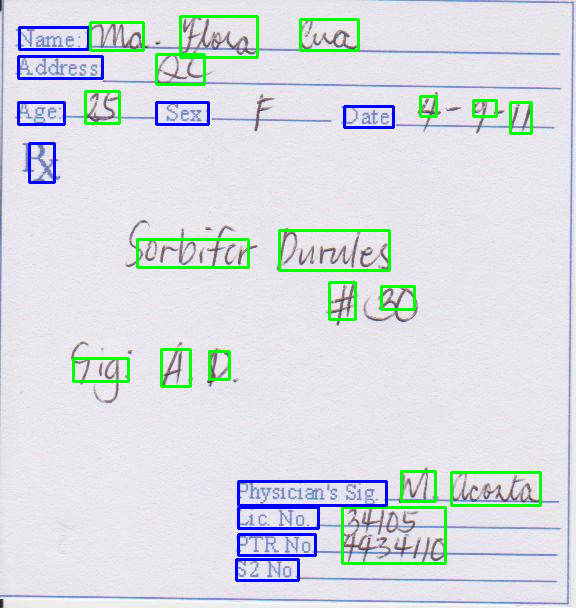 Name: Ma. Flora Cua
Address QC
Age: 25 Sex: F Date 4-9-11
Rx
Sorbifer Durules
# 30
Sig: A. D.
Physician's Sig. M. Acosta
Lic. No. 34105
PTR No 4434110
S2 No